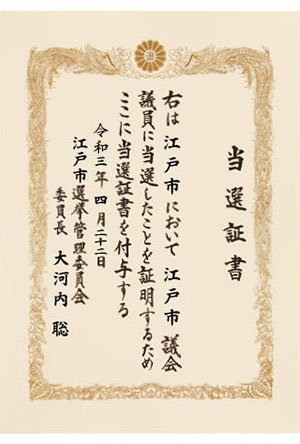 選
当選証書
右は江戸市において江戸市議会
議員に当選したことを証明するため
ここに当選証書を付与する
令和三年四月二十二日
江戸市選挙管理委員会
委員長 大河内 聡